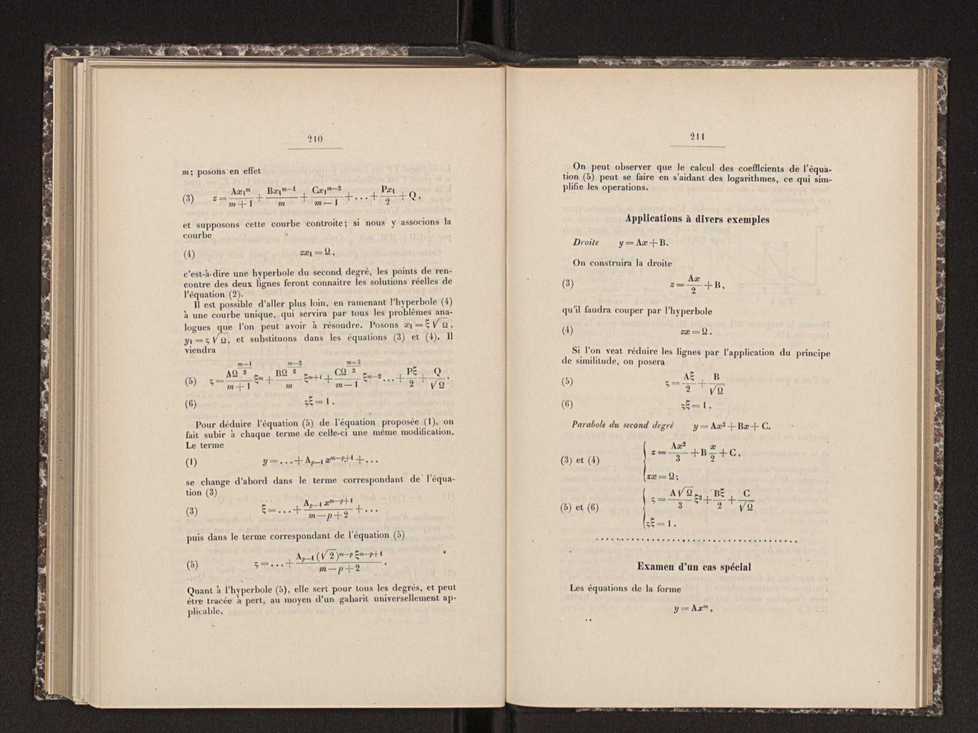 210
m; posons en effet
(3) z = Ax₁ᵐ/(m+1) + Bx₁ᵐ⁻¹/m + Cx₁ᵐ⁻²/(m−1) + ... + Px₁/2 + Q,
et supposons cette courbe controite; si nous y associons la
courbe
(4) zx₁ = Ω,
c'est-à-dire une hyperbole du second degré, les points de ren-
contre des deux lignes feront connaitre les solutions réelles de
l'équation (2).
Il est possible d'aller plus loin, en ramenant l'hyperbole (4)
à une courbe unique, qui servira par tous les problèmes ana-
logues que l'on peut avoir à résoudre. Posons x₁ = ξ√Ω,
y₁ = ς√Ω, et substituons dans les équations (3) et (4). Il
viendra
(5) ς = AΩ^((m−1)/2)/(m+1) ξᵐ + BΩ^((m−2)/2)/m ξᵐ⁺¹ + CΩ^((m−3)/2)/(m−1) ξᵐ⁻² ... + Pξ/2 + Q/√Ω.
(6) ςξ = 1.
Pour déduire l'équation (5) de l'équation proposée (1), on
fait subir à chaque terme de celle-ci une même modification.
Le terme
(1) y = ... + Aₚ₋₁ xᵐ⁻ᵖ⁺¹ + ...
se change d'abord dans le terme correspondant de l'équa-
tion (3)
(3) ξ = ... + Aₚ₋₁ xᵐ⁻ᵖ⁺¹/(m−p+2) + ...
puis dans le terme correspondant de l'équation (5)
(5) ς = ... + Aₚ₋₁ (√2)ᵐ⁻ᵖ ξᵐ⁻ᵖ⁺¹/(m−p+2).
Quant à l'hyperbole (5), elle sert pour tous les degrés, et peut
être tracée à pert, au moyen d'un gabarit universellement ap-
plicable.
211
On peut observer que le calcul des coefficients de l'équa-
tion (5) peut se faire en s'aidant des logarithmes, ce qui sim-
plifie les operations.
Applications à divers exemples
Droite y = Ax + B.
On construira la droite
(3) z = Ax/2 + B,
qu'il faudra couper par l'hyperbole
(4) zx = Ω.
Si l'on veat réduire les lignes par l'application du principe
de similitude, on posera
(5) ς = Aξ/2 + B/√Ω
(6) ςξ = 1.
Parabole du second degré y = Ax² + Bx + C.
(3) et (4) { z = Ax²/3 + B x/2 + C,
zx = Ω;
(5) et (6) { ς = A√Ω/3 ξ² + Bξ/2 + C/√Ω
ςξ = 1.
Examen d'un cas spécial
Les équations de la forme
y = Axᵐ,